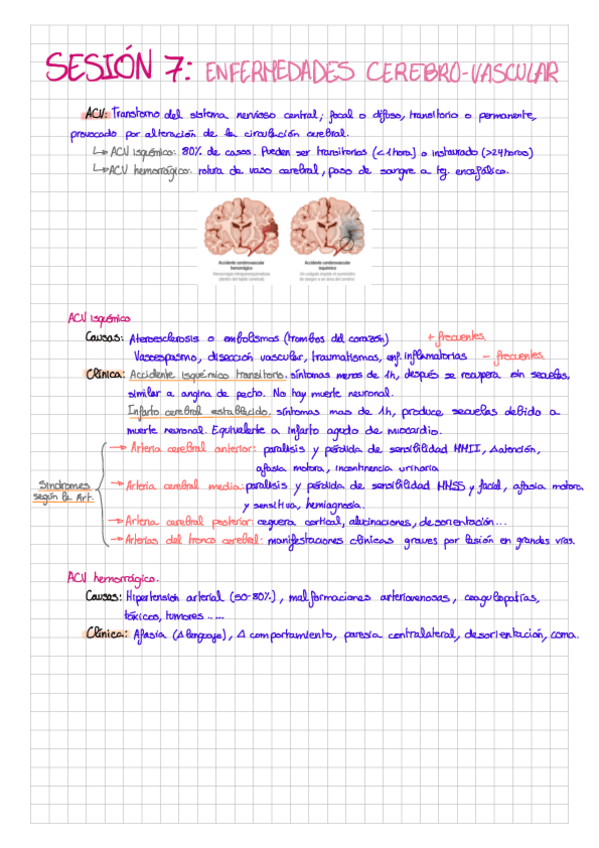 SESIÓN 7: ENFERMEDADES CEREBRO-VASCULAR
ACV: Transtorno del sistema nervioso central; focal o difuso, transitorio o permanente,
provocado por alteración de la circulación cerebral.
↳ ACV isquémico: 80% de casos. Pueden ser transitorios (<1hora) o instaurado (>24horas)
↳ ACV hemorrágico: rotura de vaso cerebral, paso de sangre a tej. encefálico.
Accidente cerebrovascular hemorrágico
Accidente cerebrovascular isquémico
ACV isquémico
Causas: Ateroesclerosis o embolismos (trombos del corazón) + frecuentes
Vasoespasmo, disección vascular, traumatismos, enf. inflamatorias - frecuentes
Clínica: Accidente isquémico transitorio. síntomas menos de 1h, después se recupera sin secuelas,
similar a angina de pecho. No hay muerte neuronal.
Infarto cerebral establecido. síntomas mas de 1h, produce secuelas debido a
muerte neuronal. Equivalente a infarto agudo de miocardio.
Síndromes según la Art.
→ Arteria cerebral anterior: paralisis y pérdida de sensibilidad MMII, Δatención,
afasia motora, incontinencia urinaria
→ Arteria cerebral media: paralisis y pérdida de sensibilidad MMSS y facial, afasia motora
y sensitiva, hemiagnosia.
→ Arteria cerebral posterior: ceguera cortical, alucinaciones, desorientación...
→ Arterias del tronco cerebral: manifestaciones clínicas graves por lesión en grandes vías.
ACV hemorrágico.
Causas: Hipertensión arterial (50-80%), malformaciones arteriovenosas, coagulopatías,
tóxicos, tumores .....
Clínica: Afasia (Δ lenguaje), Δ comportamiento, paresia contralateral, desorientación, coma.